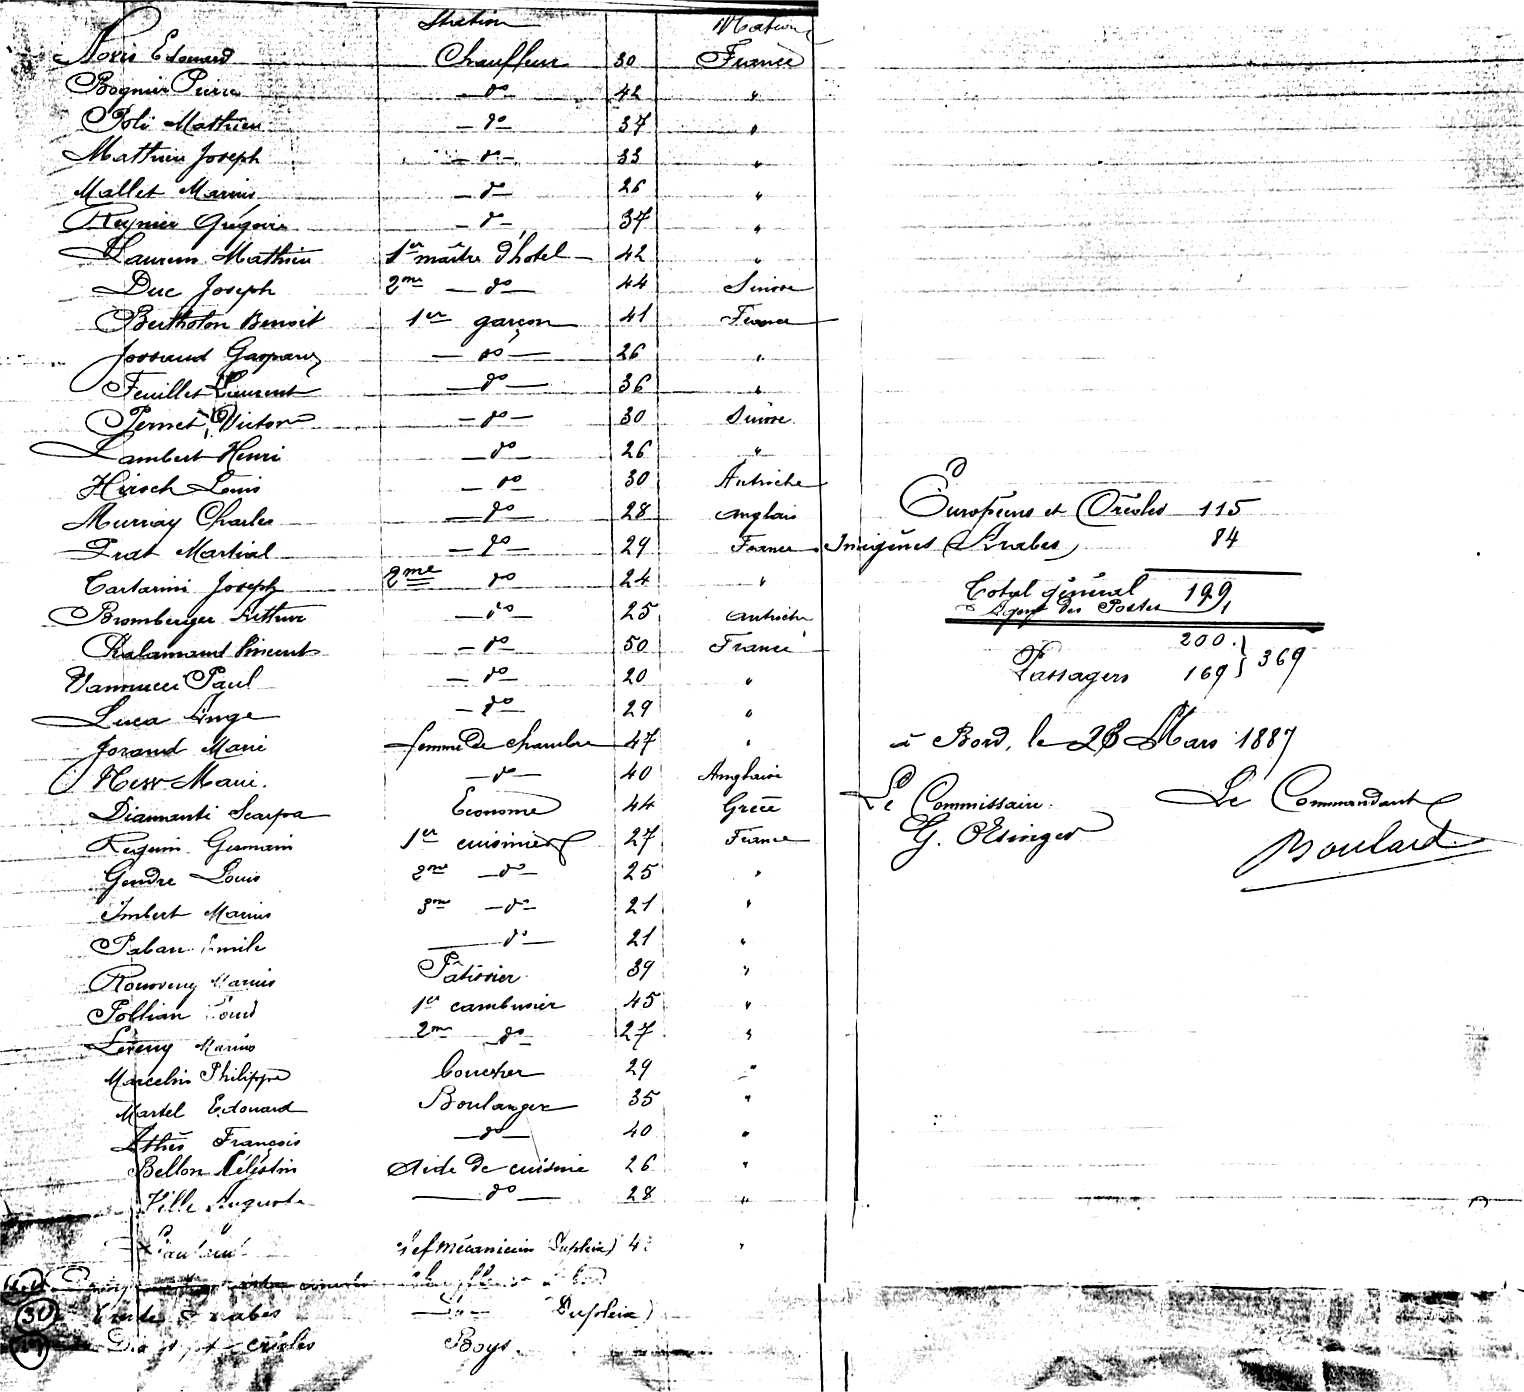 Station Nation
Noris Edouard Chauffeur 30 France
Bognier Pierre — do — 42 "
Poli Mathieu — do — 37 "
Mathieu Joseph — do — 33 "
Mallet Marius — do — 26 "
Reynier Grégoire — do — 37 "
Laurens Mathieu 1er maître d'hotel — 42 "
Duc Joseph 2me — do — 44 Suisse
Bertholon Benoit 1er garçon 41 France
Jossaud Gaspard — do — 26 "
Feuillet Laurent — do — 36 "
Pernet Victor — do — 30 Suisse
Lambert Henri — do — 26 "
Hirsch Louis — do — 30 Autriche
Murray Charles — do — 28 Anglais
Prat Martial — do — 29 France
Tartarini Joseph 2me do 24 "
Bromberger Arthur — do — 25 Autriche
Chalamand Vincent — do — 50 France
Vannucci Paul — do — 20 "
Luca Ange — do — 29 "
Jorand Marie femme de chambre 47 "
Hess Marie. — do — 40 Anglaise
Diamanti Scarpa Econome 44 Grèce
Reguin Germain 1er cuisinier 27 France
Gendre Louis 2me — do — 25 "
Imbert Marius 3me — do — 21 "
Paban Emile — do — 21 "
Marius Pâtissier 39 "
1er cambusier 45 "
Marius 2me do 27 "
Marcelin Philippe Boucher 29 "
Martel Edouard Boulanger 35 "
François — do — 40 "
Bellon Célestin Aide de cuisine 26 "
Ville Auguste — do — 28 "
mécanicien (Dupleix) "
30 Trente Arabes — do — Dupleix)
créoles Boys
Européens et Créoles 115
Indigènes (Arabes) 84
Total général 199
Agent des Postes 1
200 } 369
Passagers 169
à Bord, le 28 Mars 1887
Le Commissaire. Le Commandant
G. Boulard